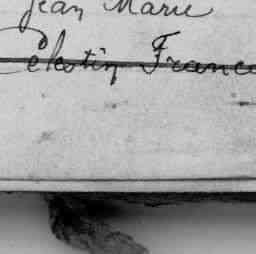 Jean Marie
Célestin France